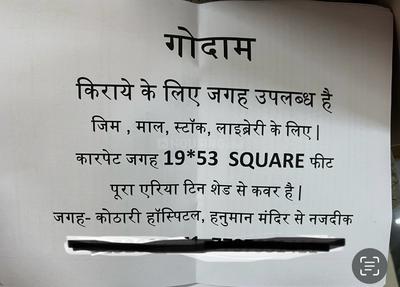 गोदाम
किराये के लिए जगह उपलब्ध है
जिम , माल, स्टॉक, लाइब्रेरी के लिए |
कारपेट जगह 19*53 SQUARE फीट
पूरा एरिया टिन शेड से कवर है |
जगह- कोठारी हॉस्पिटल, हनुमान मंदिर से नजदीक